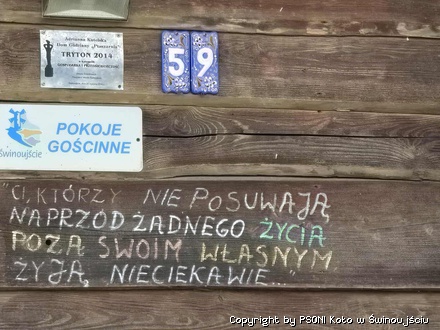 Dom Gościnny
TRYTON 2014
w kategorii
59
Świnoujście
POKOJE
GOŚCINNE
"CI, KTÓRZY NIE POSUWAJĄ
NAPRZÓD ŻADNEGO ŻYCIA
POZA SWOIM WŁASNYM
ŻYJĄ NIECIEKAWIE..."
Copyright by PSONI Koło w Świnoujściu